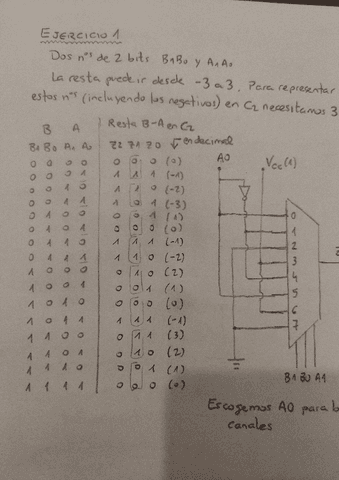 EJERCICIO 1
Dos nos de 2 bits B1B0 y A1A0
La resta puede ir desde -3 a 3. Para representar
estos nos (incluyendo los negativos) en C2 necesitamos 3
B A Resta B-A en C2
B1 B0 A1 A0 Z2 Z1 Z0 en decimal
0 0 0 0 0 0 0 (0)
0 0 0 1 1 1 1 (-1)
0 0 1 0 1 1 0 (-2)
0 0 1 1 1 0 1 (-3)
0 1 0 0 0 0 1 (1)
0 1 0 1 0 0 0 (0)
0 1 1 0 1 1 1 (-1)
0 1 1 1 1 1 0 (-2)
1 0 0 0 0 1 0 (2)
1 0 0 1 0 0 1 (1)
1 0 1 0 0 0 0 (0)
1 0 1 1 1 1 1 (-1)
1 1 0 0 0 1 1 (3)
1 1 0 1 0 1 0 (2)
1 1 1 0 0 0 1 (1)
1 1 1 1 0 0 0 (0)
A0 Vcc(1)
0
1
2
3
4
5
6
7
B1 B0 A1
Escogemos A0 para
canales